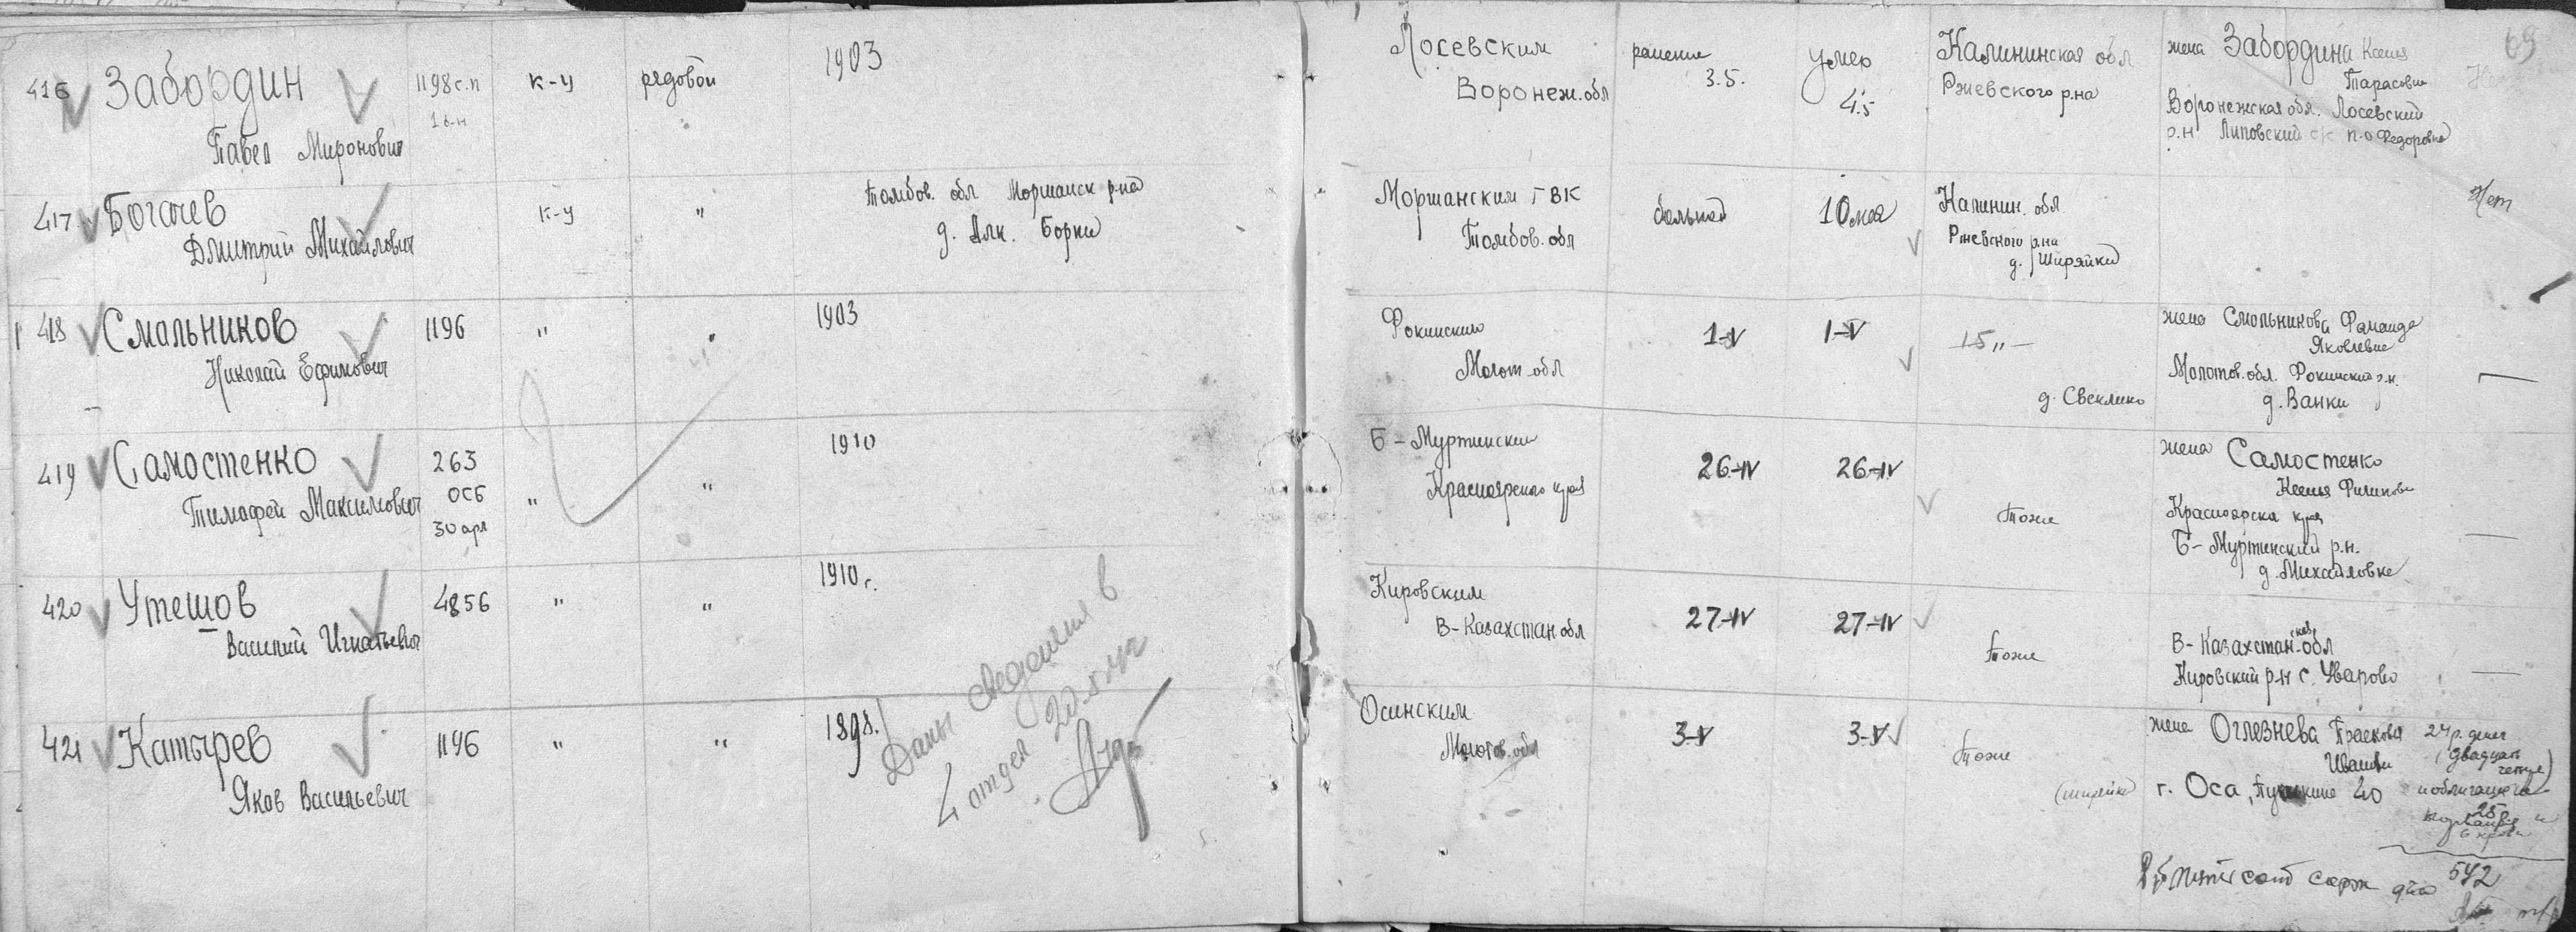 69
416 Забордин 1198 с.п к-у рядовой 1903 Лосевским ранение умер Калининская обл жена Забордина Ксения
1 б-н Воронеж. обл 3.5. 4.5 Ржевского р.на Тарасовн
Павел Миронович Воронежская обл. Лосевский
р.н Липовский с/с п-о Федоровка
417 Богачев к-у " Тамбов. обл Моршанск р-на Моршанским ГВК больной 10 мая Калинин. обл Нет
Дмитрий Михайлович д. Алк. Борки Тамбов. обл Ржевского р.на
д. Ширяйки
418 Смальников 1196 " " 1903 Фокинским 1-V 1-V -"- жена Смольникова
Николай Ефимович Молот. обл Яковлевна
д. Свеклино Молотов. обл. Фокинский р.н. —
д. Ванки
419 Самостенко 263 " " 1910 Б-Муртински 26-IV 26-IV Тоже жена Самостенко
Тимофей Максимович ОСБ Красноярского края Ксенья
30 арм Красноярска края
Б-Муртинский р.н. —
д. Михайловка
420 Утешов 4856 " " 1910 г. Кировским 27-IV 27-IV Тоже В-Казахстанская обл
Василий Игнатьевич В-Казахстан обл Кировский р-н с. Уварово —
421 Катырев 1196 " " 1898. Осинским 3-V 3-V Тоже жена Оглезнева Прасковя 24 р. денег
Яков Васильевич Молотов. обл (ширяйки) Иванов (двадцать четыре)
г. Оса, Пушкина 40 и облигация на
25 р
Даны сведения в
4 отдел 20.5.42
Рб пятьсот сорок два 542